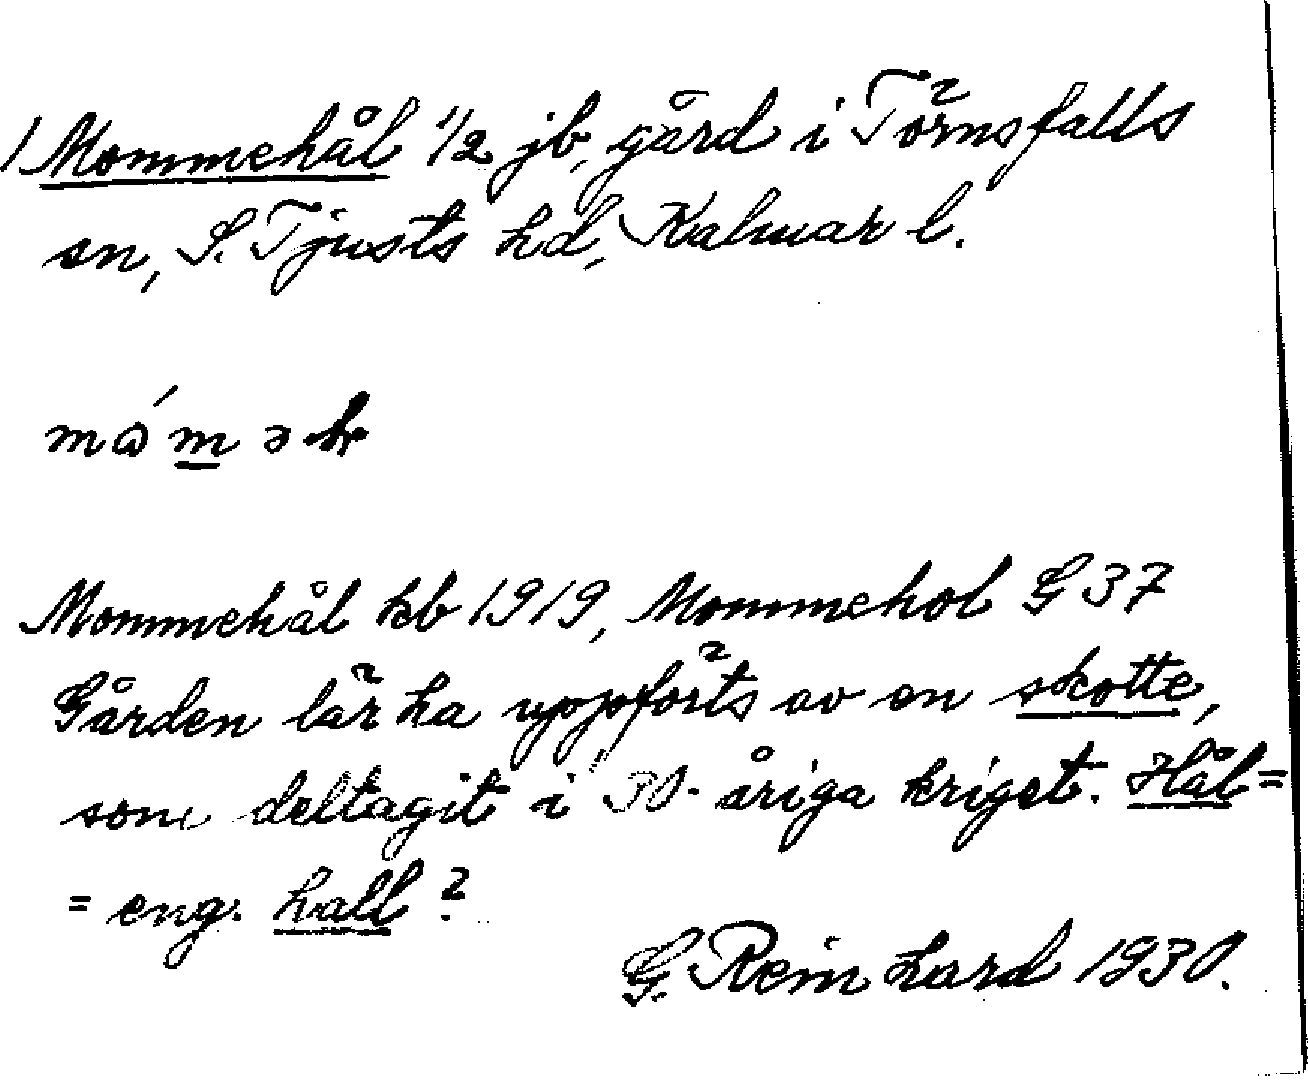 / Mommehål 1/2 jb, gård i Törnsfalls
sn, S. Tjusts hd, Kalmar l.
Mommehål kb 1919, Mommehol G 37
Gården lär ha uppförts av en skotte,
som deltagit i 30-åriga kriget. Hål =
= eng. hall?
G. Reinhard 1930.